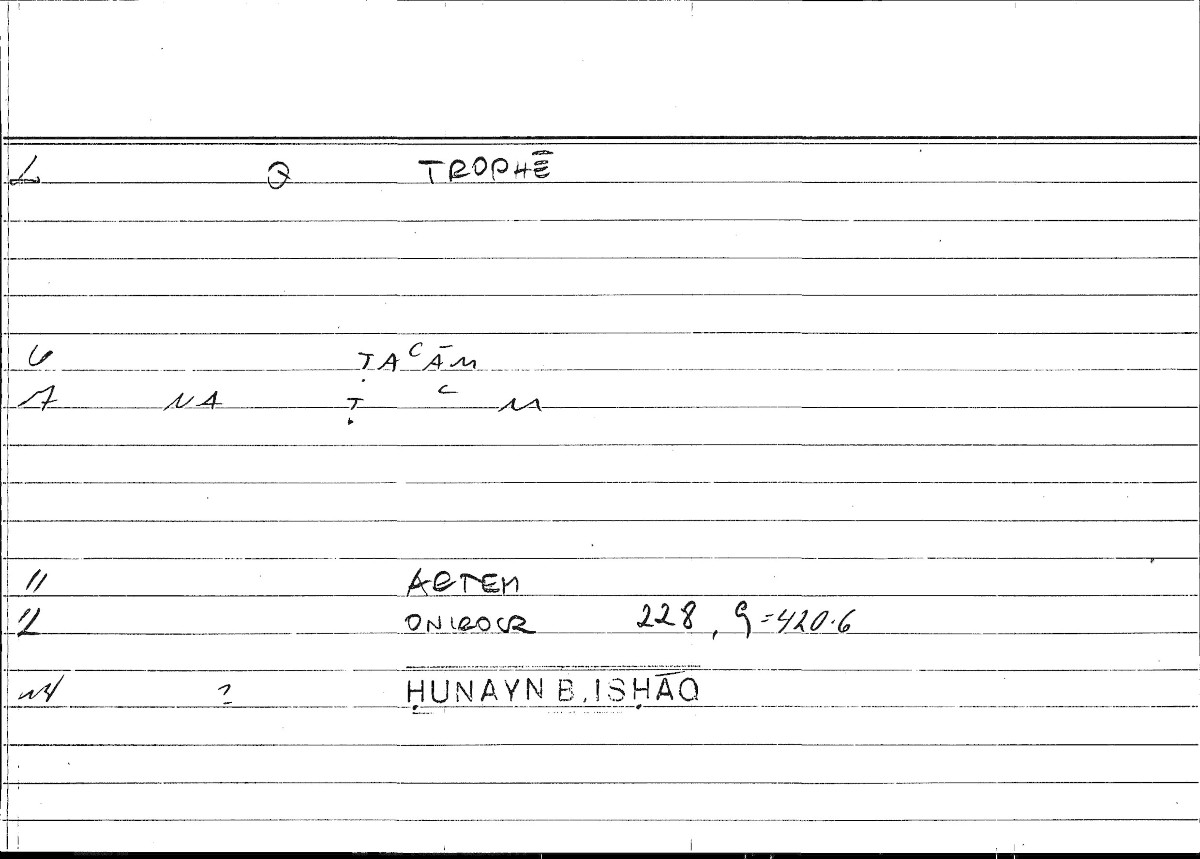 1 Q TROPHĒ
6 ṬAᶜĀM
7 NA Ṭ ᶜ M
11 ARTEM
12 ONIROCR 228, 9=420.6
14 ? ḤUNAYN B. ISḤĀQ